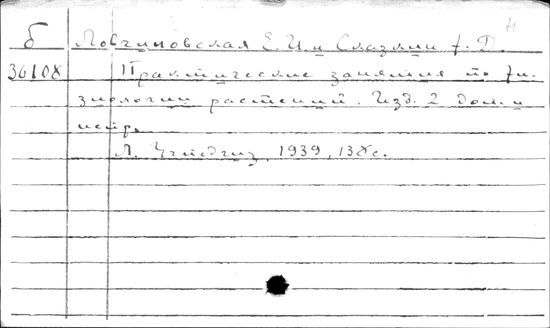 б Ловчиновская Е.И. и Сказкин Ф.Д.
36108 Практические занятия по фи-
зиологии растений. Изд. 2 доп. и
испр.
Л. Учпедгиз, 1939, 138с.